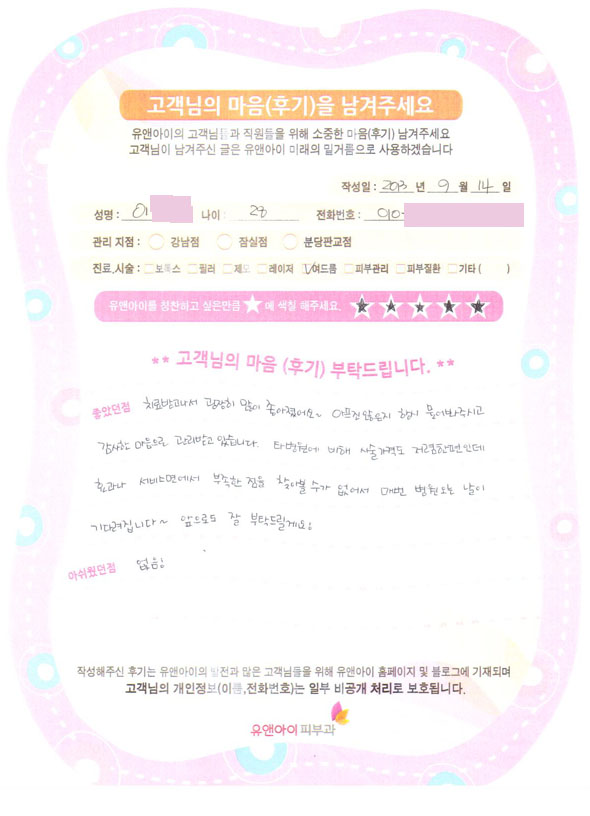 고객님의 마음(후기)을 남겨주세요
유앤아이의 고객님들과 직원들을 위해 소중한 마음(후기) 남겨주세요
고객님이 남겨주신 글은 유앤아이 미래의 밑거름으로 사용하겠습니다
작성일 : 2013 년 9 월 14 일
성명 : 이 나이 : 28 전화번호 : 010-
관리 지점 : 강남점 잠실점 분당판교점
진료,시술 : 보톡스 필러 제모 레이저 여드름 피부관리 피부질환 기타 ( )
유앤아이를 칭찬하고 싶은만큼 ★에 색칠 해주세요. ★★★★★
** 고객님의 마음 (후기) 부탁드립니다. **
좋았던점 치료받고나서 굉장히 많이 좋아졌어요~ 아프진않은지 항상 물어봐주시고
감사한 마음으로 관리받고 있습니다. 타병원에 비해 시술가격도 저렴한편인데
효과나 서비스면에서 부족한 점을 찾아볼 수가 없어서 매번 병원오는 날이
기다려집니다~ 앞으로도 잘 부탁드릴게요!
아쉬웠던점 없음!
작성해주신 후기는 유앤아이의 발전과 많은 고객님들을 위해 유앤아이 홈페이지 및 블로그에 기재되며
고객님의 개인정보(이름,전화번호)는 일부 비공개 처리로 보호됩니다.
유앤아이 피부과